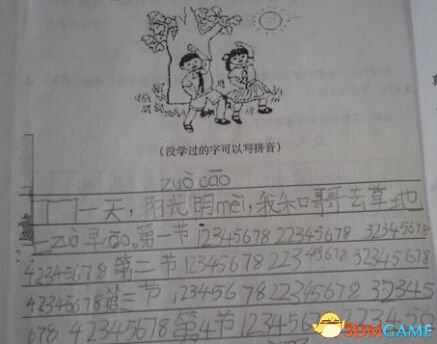 (没学过的字可以写拼音)
zuò cāo
一天，阳光明mèi，我和哥哥去草地
上zuò早cāo。第一节12345678 22345678 32345678
42345678第二节12345678 22345678 32345678
42345678第三节12345678 22345678 32345
678 42345678第4节12345678
3DMGAME